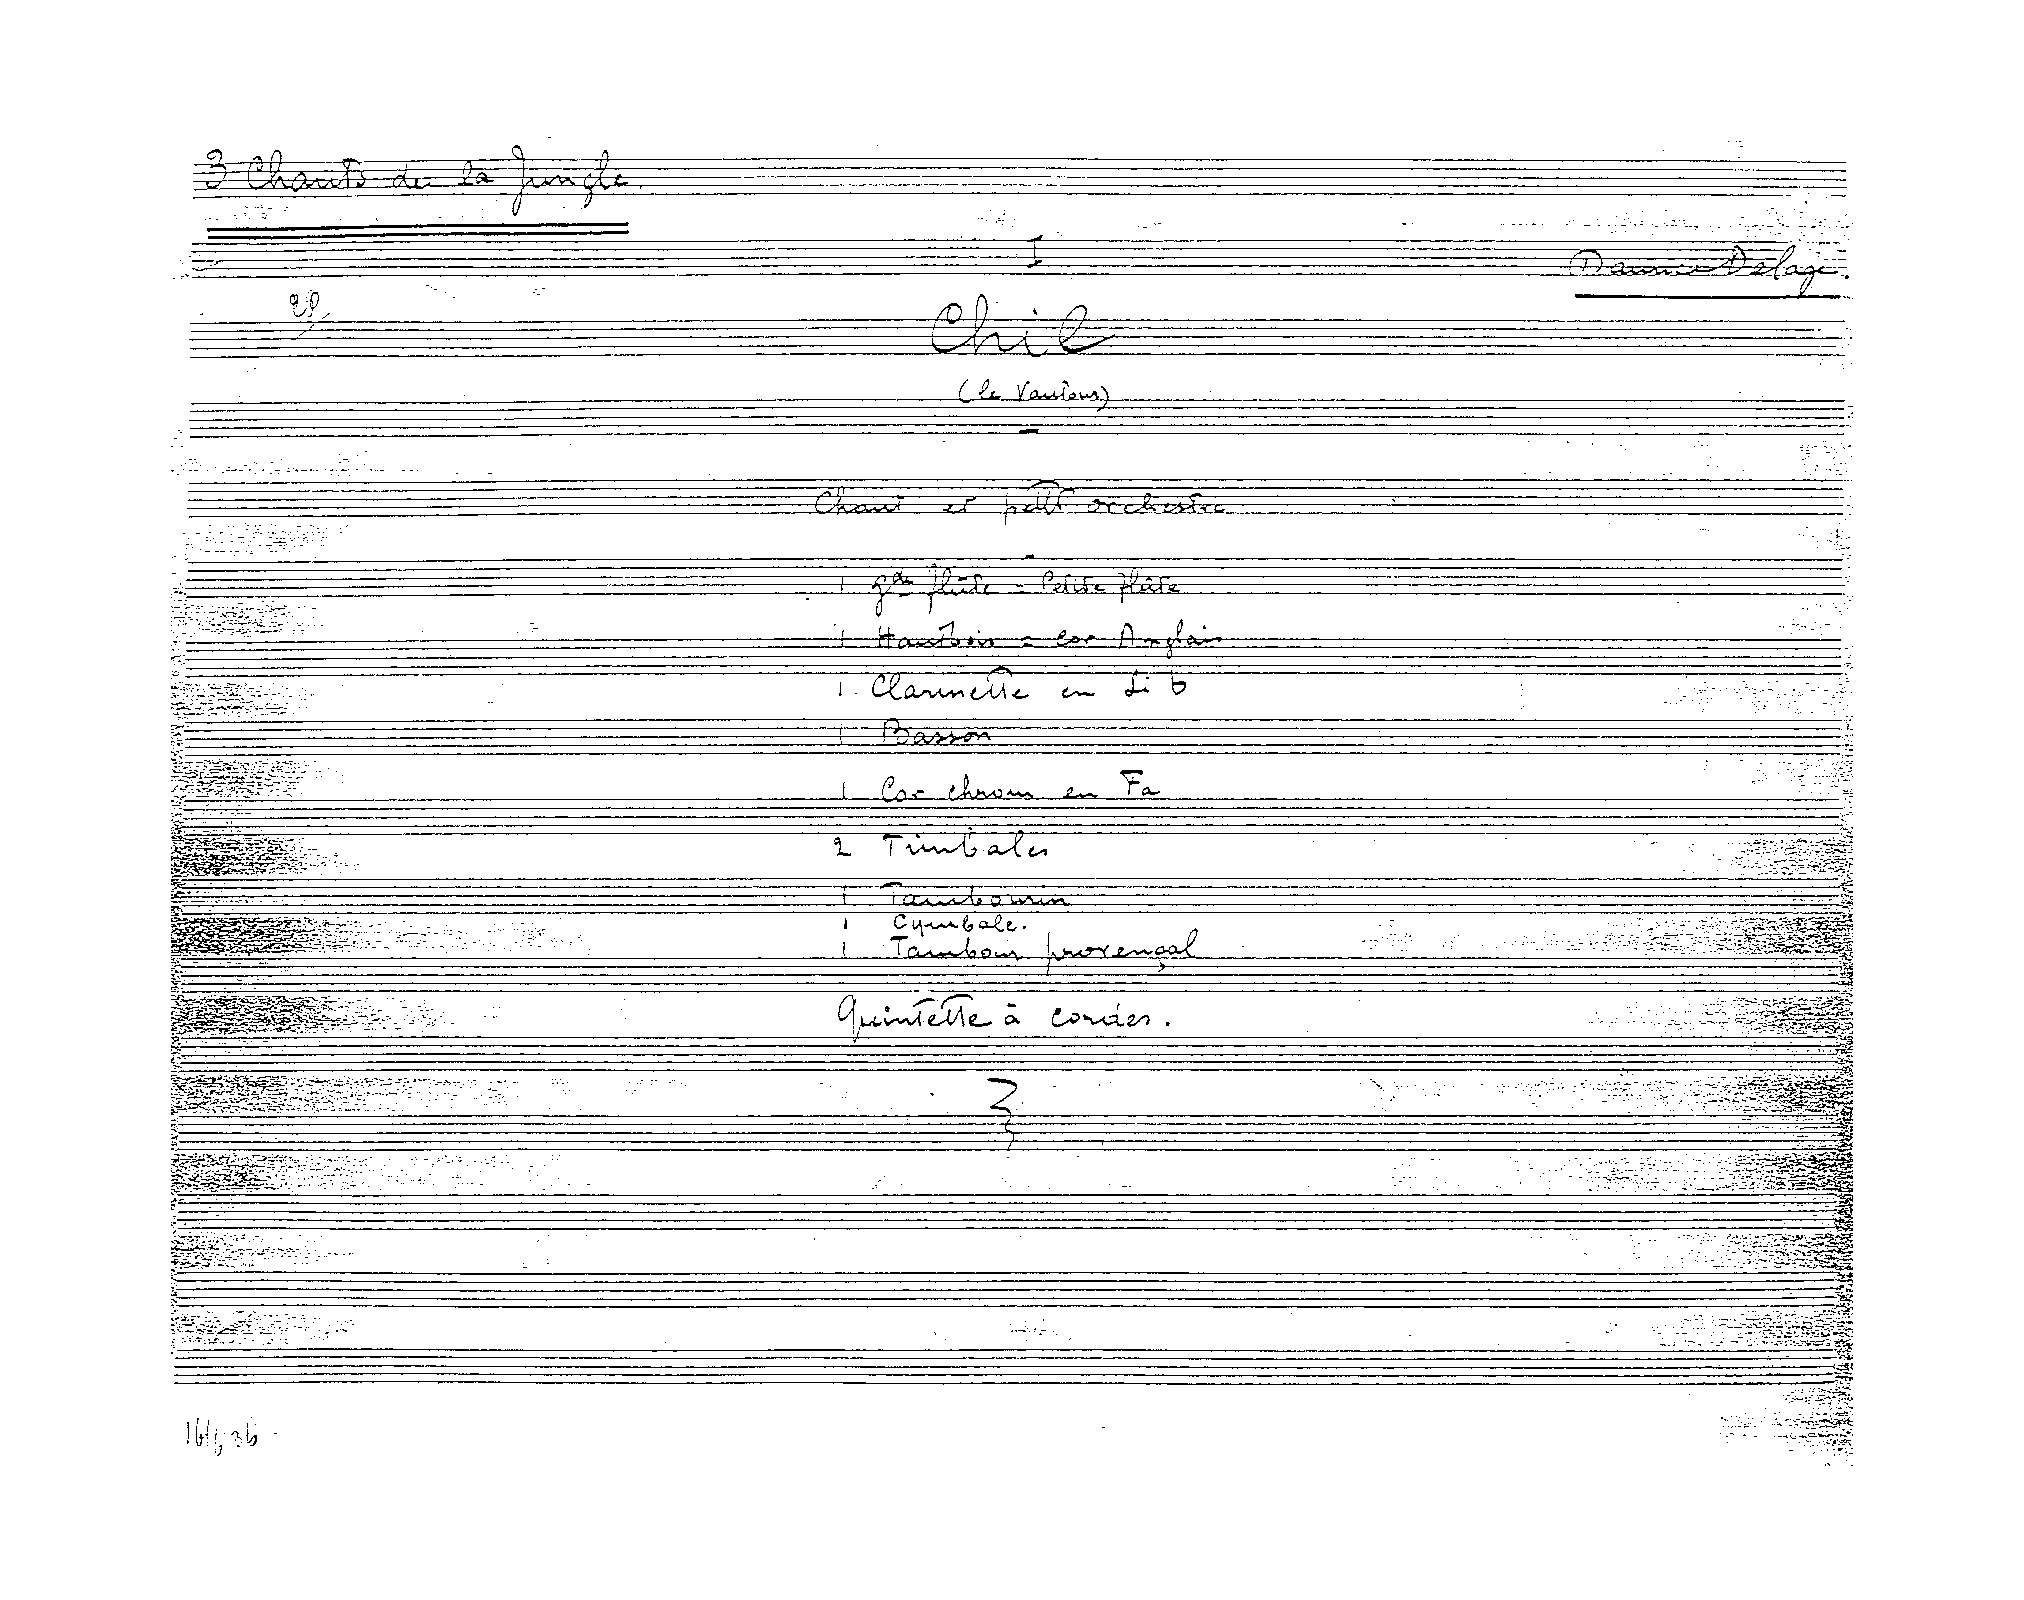 3 Chants de la Jungle.
I
Maurice Delage.
Chil
(le Vautour)
Chant et petit orchestre
1 gde flûte = Petite flûte
1 Hautbois = Cor Anglais
1 Clarinette en Si b
1 Basson
1 Cor chrom en Fa
2 Timbales
1 Tambourin
1 Cymbale.
1 Tambour provençal
Quintette à cordes.